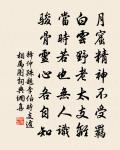 月窟精神不受羈
白雲野老太支離
當時若也無人解
駿骨靈心各自知
釋仲殊題李伯時支遁
相馬圖詞典網